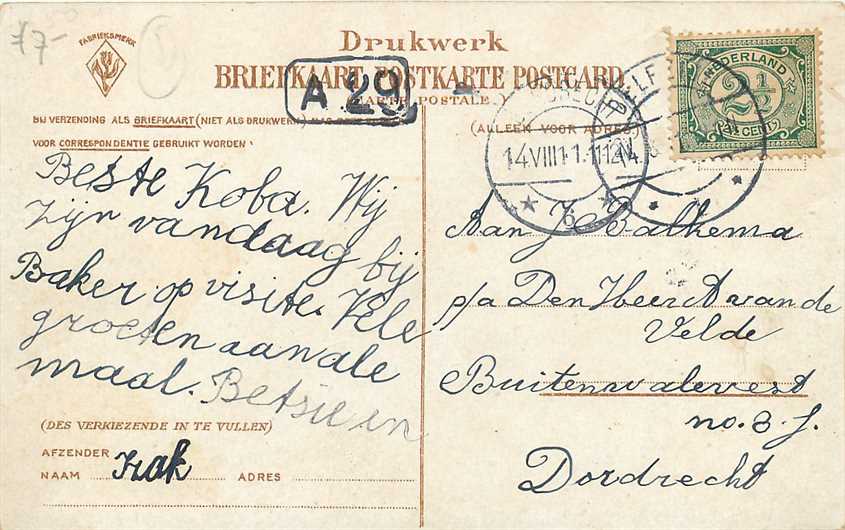 77-
FABRIEKSMERK
Drukwerk
BRIEFKAART POSTKARTE POSTCARD
CARTE POSTALE.
A 29
BIJ VERZENDING ALS BRIEFKAART (NIET ALS DRUKWERK)
(ALLEEN VOOR ADRES)
VOOR CORRESPONDENTIE GEBRUIKT WORDEN
NEDERLAND
2½
2½ CENT
DELF
DRECHT
14 VIII 11
Beste Koba. Wij
zijn vandaag bij
Baker op visite. Vele
groeten aan ale
maal. Betsie en
Aan J Balkema
p/a Den Heer A van de
Velde
Buitenwalevest
no. 3 f.
Dordrecht
(DES VERKIEZENDE IN TE VULLEN)
AFZENDER
NAAM Izak ADRES